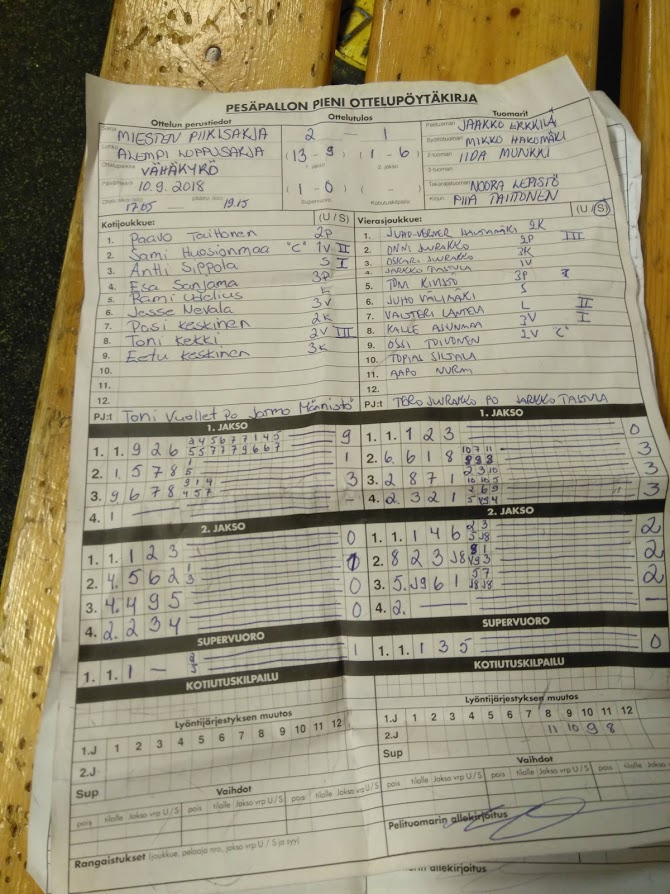 PESÄPALLON PIENI OTTELUPÖYTÄKIRJA
Ottelun perustiedot Ottelutulos Tuomarit
MIESTEN PIIRISARJA 2 — 1 Pelituomari JAAKKO ERKKILÄ
ALEMPI LOPPUSARJA (13 - 9) (1 - 6) MIKKO HAKOMÄKI
Ottelupaikka VÄHÄKYRÖ 1. jakso 2. jakso 2-tuomari IIDA MUNKKI
Päivämäärä 10.9.2018 (1 - 0) ( - ) 3-tuomari
17.05 — 19.15 Supervuoro Kotiutuskilpailu Takarajatuomari NOORA LEPISTÖ
Kirjuri PIIA TAITTONEN
Kotijoukkue: (U / S) Vierasjoukkue: (U / S)
1. Paavo Taittonen 2P
2. Sami Huosionmaa "C" 1V II
3. Antti Sippola S I
4. Esa Sanjama 3P
5. Rami L
6. Jesse Nevala 3V
7. Pasi Keskinen 2K
8. Toni Kekki 2V III
9. Eetu Keskinen 3K
10.
11.
12.
PJ:t Toni Vuollet PO Jormo Männistö
1. 2K III
2. ONNI JUURAKKO 2P
3. OSKARI JUURAKKO 3K
4. JARKKO TASTULA 1V
5. TOMI KIVISTÖ 3P
6. JUHO VÄLIMÄKI S
7. VALTTERI LANTELA L II
8. KALLE ASUNMAA 3V I
9. OSSI TOIVONEN 2V "C"
10. TOPIAS SILTALA
11. AAPO NURMI
12.
PJ:t TERO JUURAKKO PO JARKKO TASTULA
1. JAKSO 1. JAKSO
1. 1. 9 2 6 3 4 5 6 7 7 1 4 5 9
5 5 7 7 7 9 6 6 7
2. 1. 5 7 8 1 1
5
3. 9 6 7 8 9 1 4 3
4 5 7
4. 1 — -
1. 1. 1 2 3 0
2. 6. 6 1 8 10 7 11 3
3. 2 8 7 1 2 3 10 3
10 10 5
4. 2. 3 2 1 2 6 9 3
2. JAKSO 2. JAKSO
1. 1. 1 2 3 0
2. 4. 5 6 2 1 1
3
3. 4. 4 9 5 0
4. 2. 2 3 4 0
1. 1. 1 4 6 2 3 2
5 J8
2. 8 2 3 J8 2
3. 5. J9 6 1 5 7 2
J8 J8
4. 2. — -
SUPERVUORO SUPERVUORO
1. 1. 1 — 1
1. 1. 1 3 5 0
KOTIUTUSKILPAILU KOTIUTUSKILPAILU
Lyöntijärjestyksen muutos Lyöntijärjestyksen muutos
1.J 1 2 3 4 5 6 7 8 9 10 11 12
2.J
Sup
1.J 1 2 3 4 5 6 7 8 9 10 11 12
2.J 11 10 9 8
Sup
Vaihdot Vaihdot
pois tilalle Jakso vrp U / S pois tilalle Jakso vrp U / S pois tilalle Jakso vrp U / S pois tilalle Jakso vrp U / S
Pelituomarin allekirjoitus
Rangaistukset (joukkue, pelaaja nro, jakso vrp U / S ja syy)
rin allekirjoitus